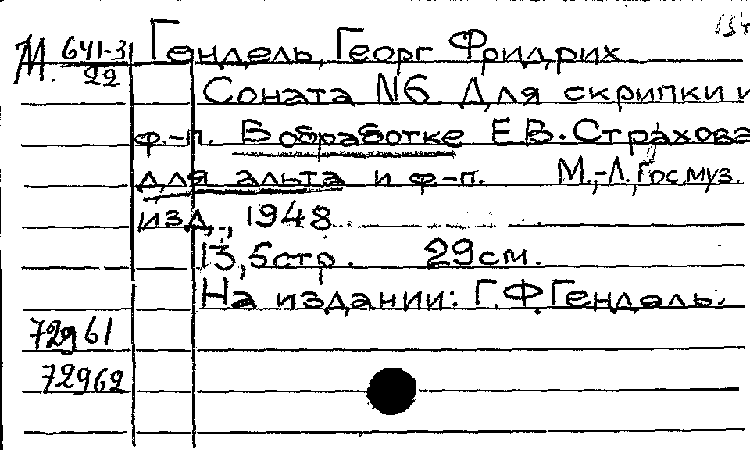 М. 641-3/22 Гендель, Георг Фридрих
Соната N6 Для скрипки и
ф.-п. В обработке Е.В. Страхова
для альта и ф-п. М.,-Л., Гос. муз.
изд., 1948
13,5 стр. 29 см.
На издании: Г.Ф. Гендель.
72961
72962